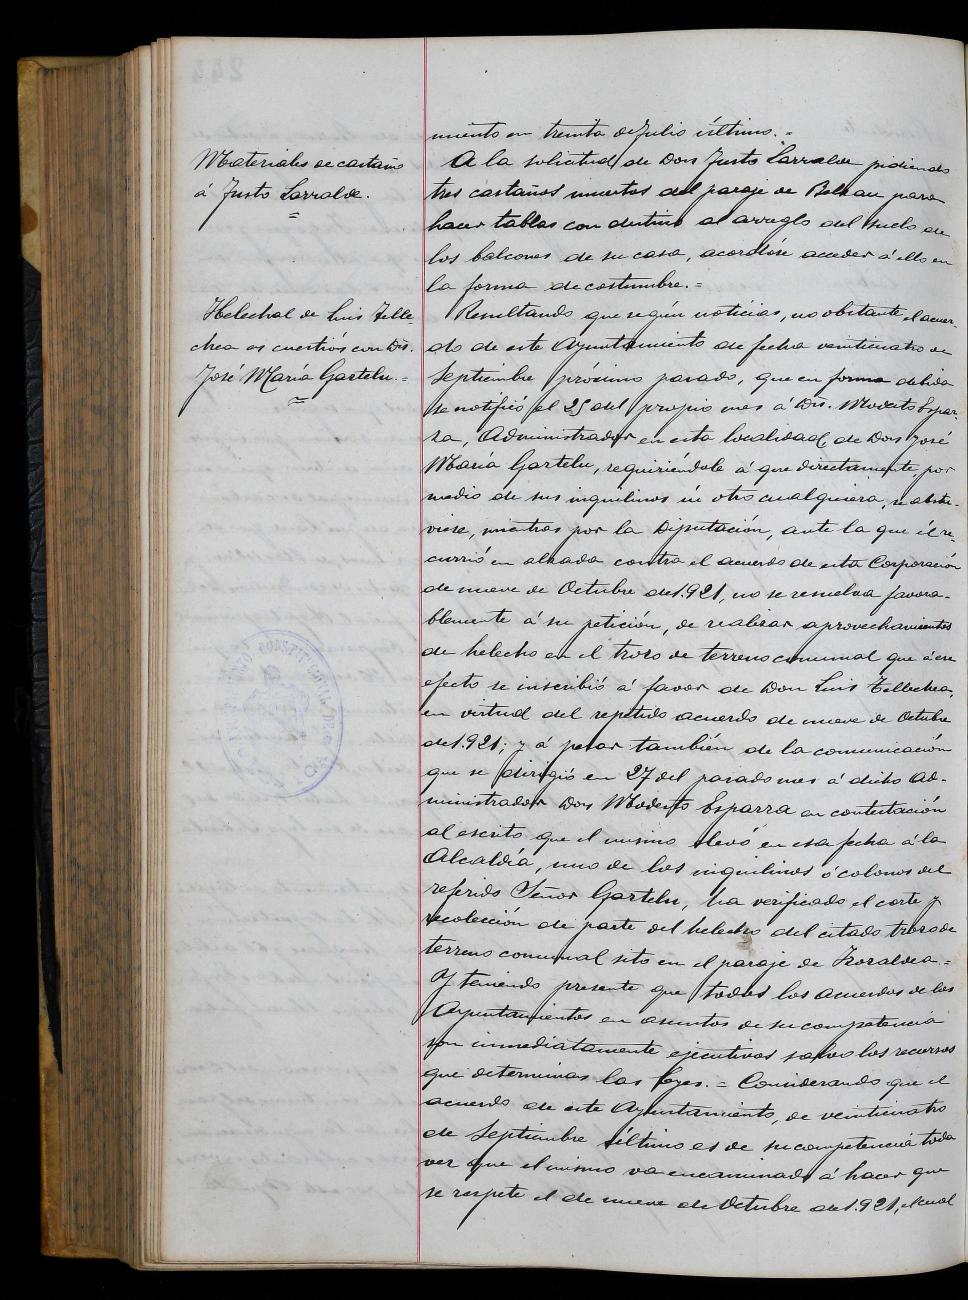 miento en treinta de Julio último.=
Materiales de castaño
á Justo Larralde.
=
A la solicitud de Don Justo Larralde pidiendo
tres castaños muertos del paraje de Belzau para
hacer tablas con destino al arreglo del suelo de
los balcones de su casa, acordóse acceder á ello en
la forma de costumbre.=
Helechal de Luis Telle-
chea os cuestión con Dn.
José María Gastelu.=
=
Resultando que según noticias, no obstante el acuer-
do de este Ayuntamiento de fecha veinticuatro de
Septiembre próximo pasado, que en forma debida
se notificó el 25 del propio mes á Dn. Modesto Espar-
za, Administrador en esta localidad de Don José
María Gastelu, requiriéndole á que directamente, por
medio de sus inquilinos ú otro cualquiera, se abstu-
viese, mientras por la Diputación, ante la que él re-
currió en alzada contra el acuerdo de esta Corporación
de nueve de Octubre de 1.921, no se resuelva favora-
blemente á su petición, de realizar aprovechamientos
de helecho en el trozo de terreno comunal que á ese
efecto se inscribió á favor de Don Luis Tellechea,
en virtud del repetido acuerdo de nueve de Octubre
de 1.921; y á pesar también de la comunicación
que se dirigió en 27 del pasado mes á dicho Ad-
ministrador Don Modesto Esparza en contestación
al escrito que el mismo elevó en esa fecha á la
Alcaldía, uno de los inquilinos ó colonos del
referido Señor Gastelu, ha verificado el corte y
recolección de parte del helecho del citado trozo de
terreno comunal sito en el paraje de Izoraldea.=
Y teniendo presente que todos los acuerdos de los
Ayuntamientos en asuntos de su competencia
son inmediatamente ejecutivos salvo los recursos
que determinas las leyes.= Considerando que el
acuerdo de este Ayuntamiento, de veinticuatro
de Septiembre último es de su competencia toda
vez que el mismo va encaminado á hacer que
se respete el de nueve de Octubre de 1.921, el cual